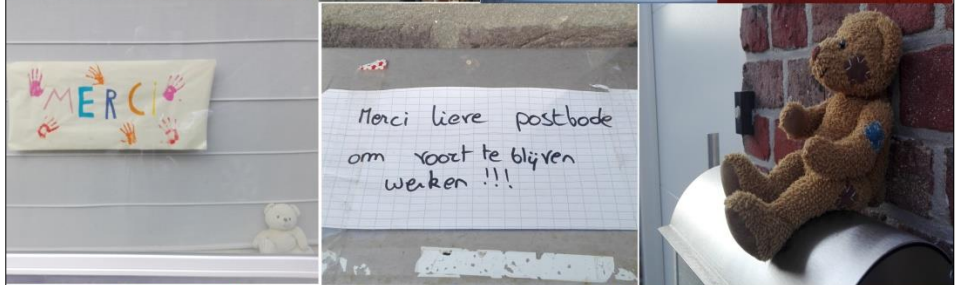 MERCI
Merci lieve postbode
om voort te blijven
werken !!!